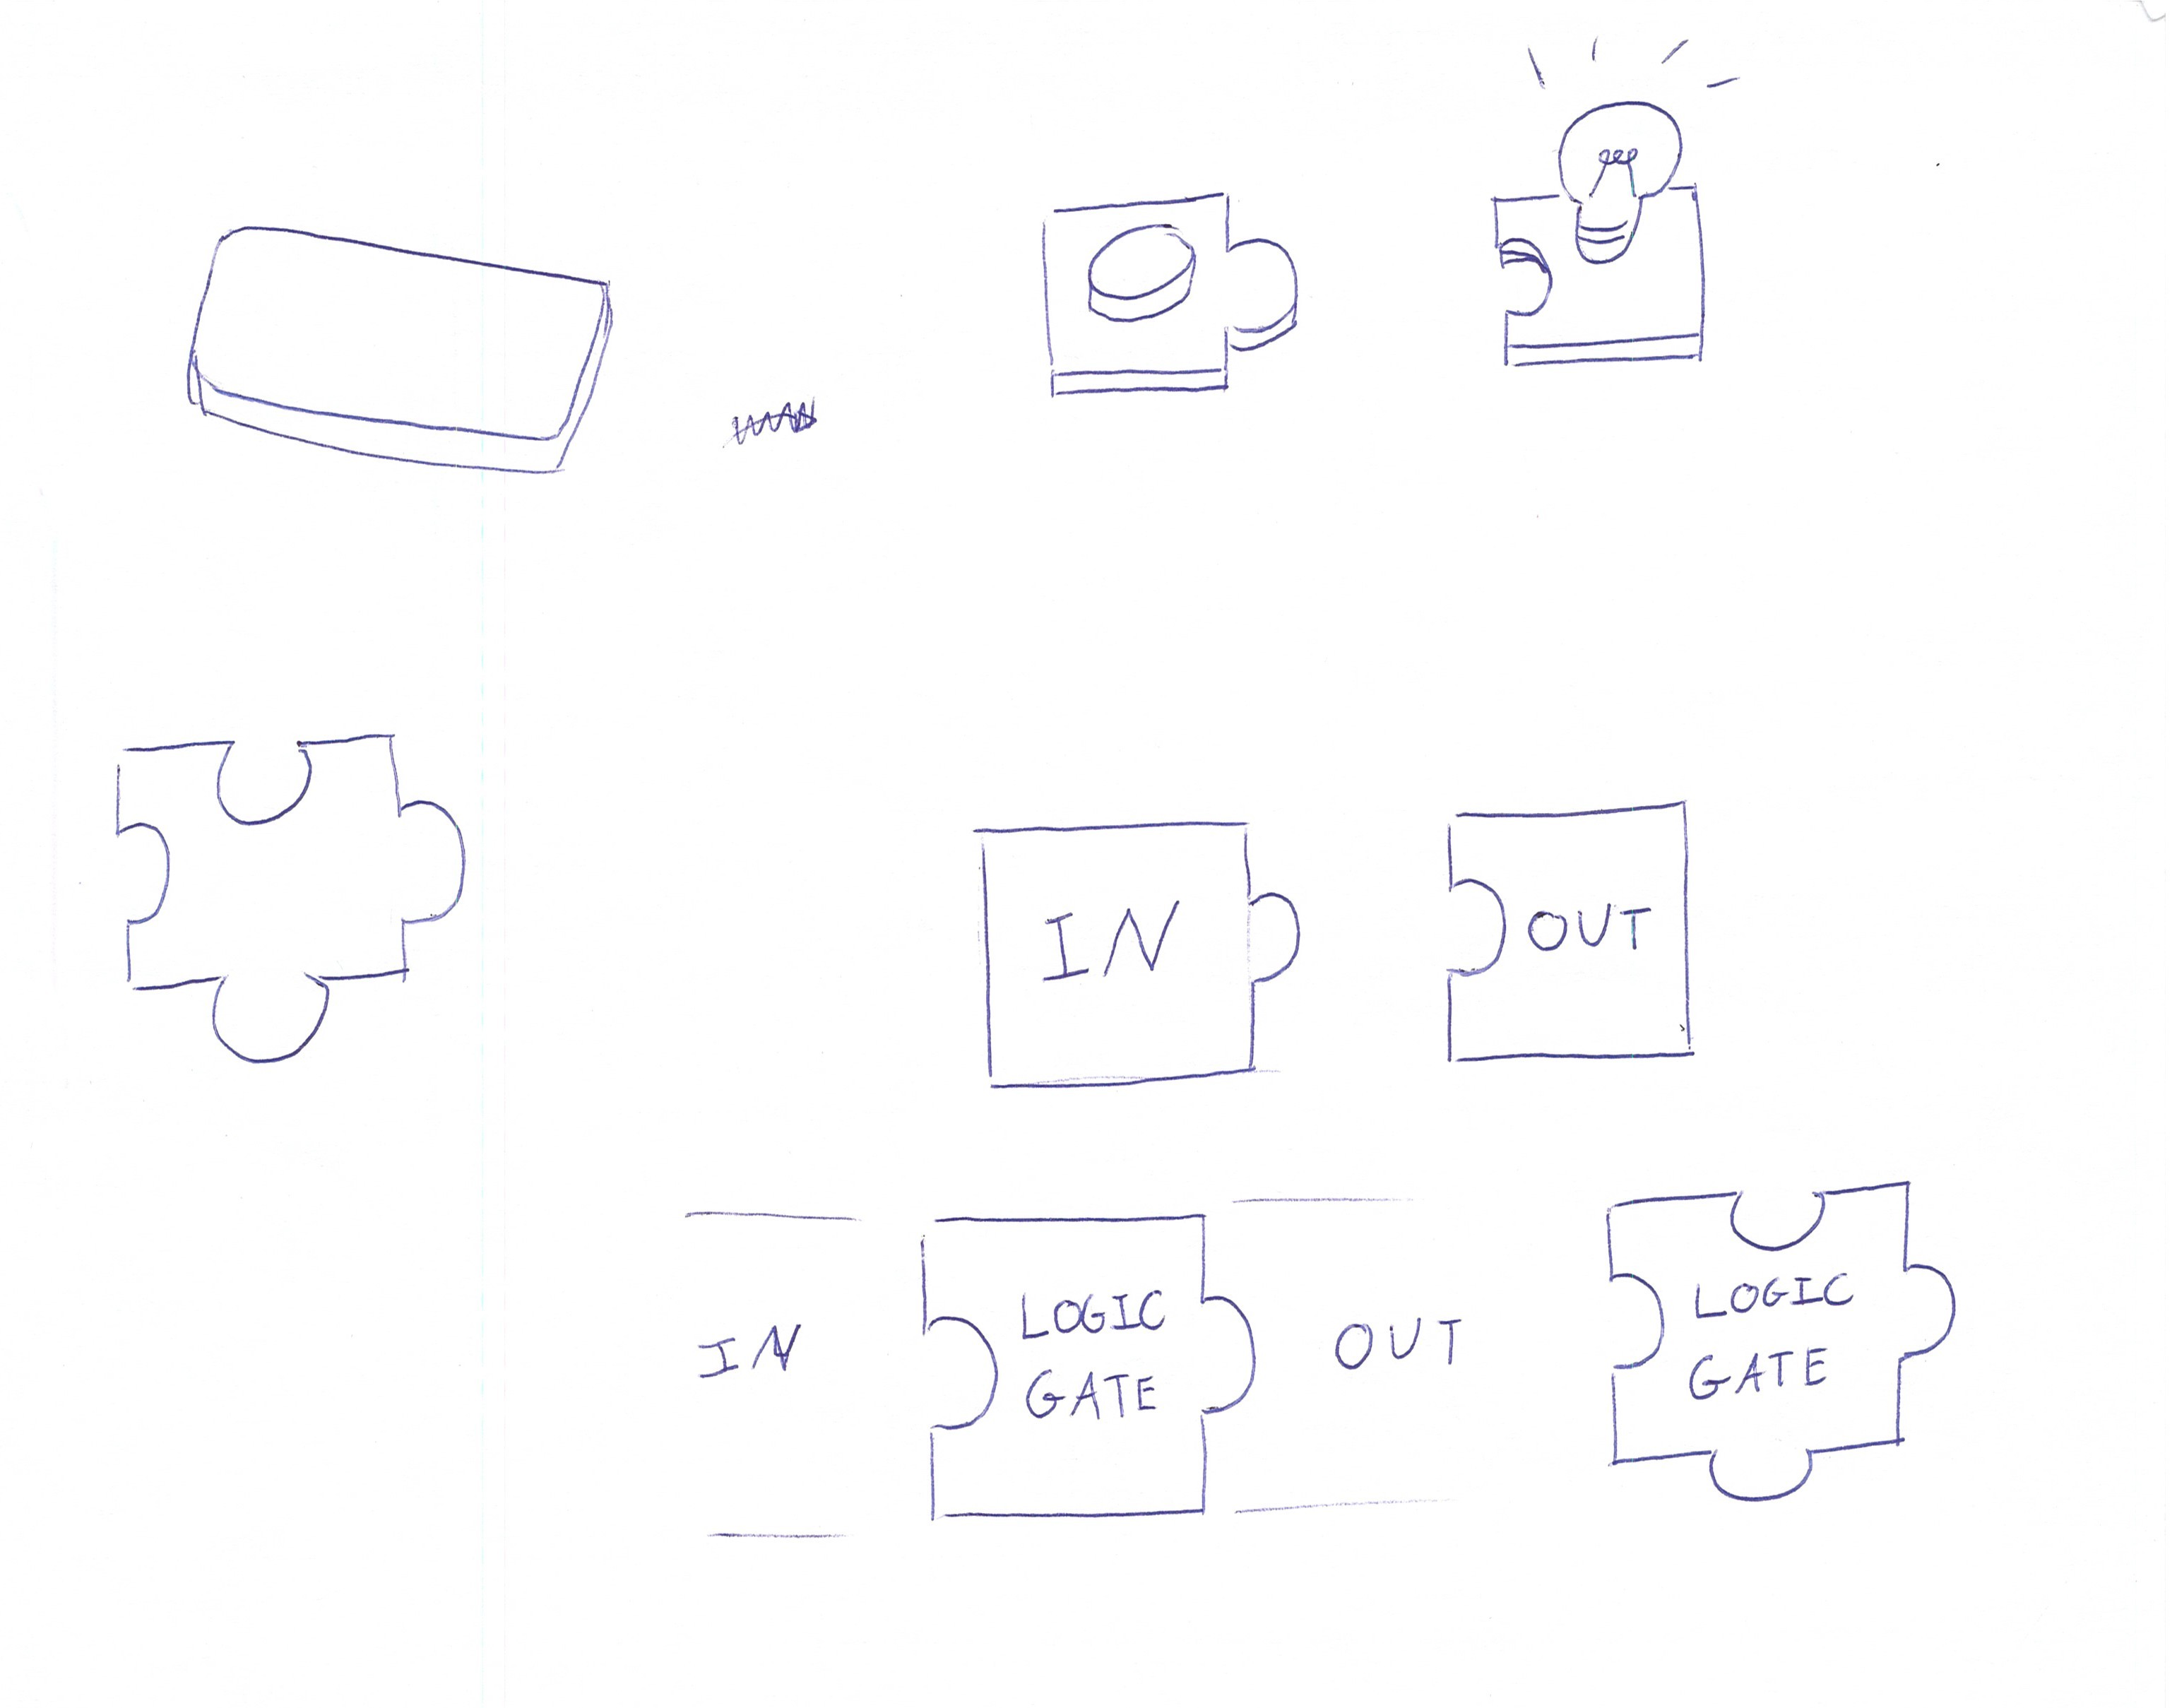 IN
OUT
IN
LOGIC
GATE
OUT
LOGIC
GATE